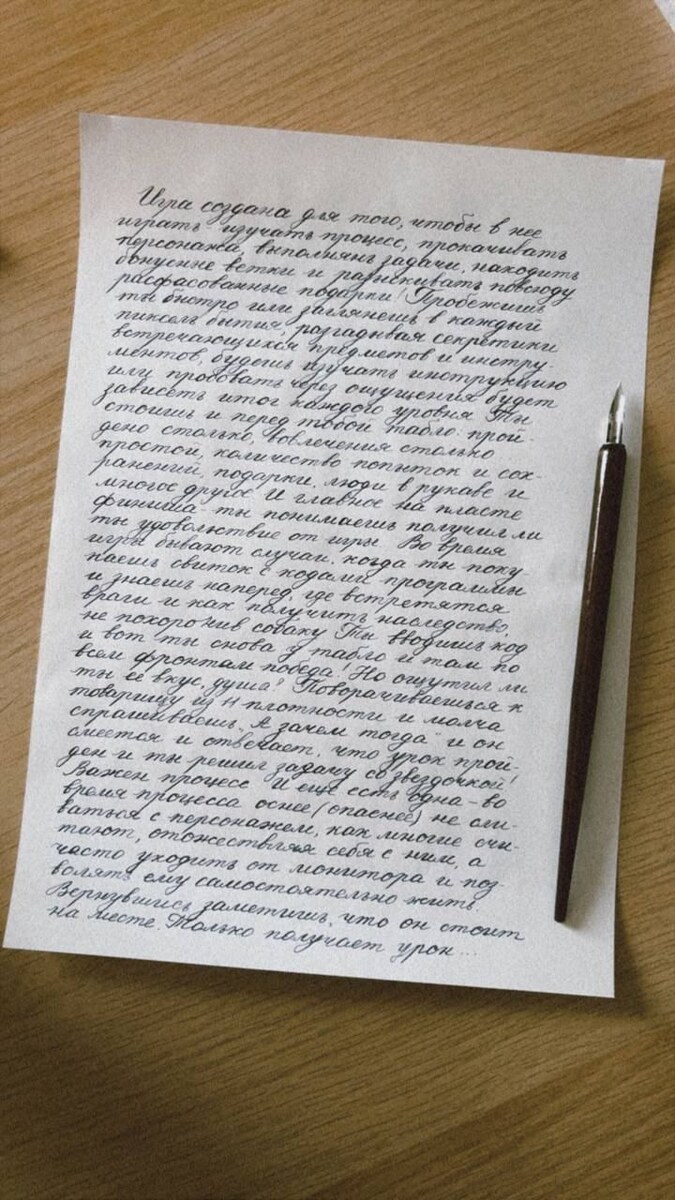 Игра создана для того, чтобы в нее
играть - изучать процесс, прокачивать
персонажа, выполнять задачи, находить
бонусные ветки и разыскивать повсюду
расфасованные подарки! Пробежишь
ты быстро или заглянешь в каждый
пиксель бытия, разгадывая секретики
встречающихся предметов и инстру-
ментов, будешь изучать инструкцию
или пробовать через ощущения будет
зависеть итог каждого уровня. Ты
стоишь и перед тобой табло: прой-
дено столько, вовлечения столько
простой, количество попыток и сох-
ранений, подарки, люди в рукаве и
многое другое. И главное на пласте
финиша - ты понимаешь получил ли
ты удовольствие от игры. Во время
игры бывают случаи, когда ты поку-
паешь свиток с кодами программы
и знаешь наперед, где встретятся
враги и как получить наследство,
не похоронив собаку. Ты вводишь код
и вот ты снова у табло и там по
всем фронтам победа! Но ощутил ли
ты ее вкус, душа? Поворачиваешься к
товарищу из н плотности и молча
спрашиваешь "А зачем тогда" и он
смеется и отвечает, что урок прой-
ден и ты решил задачу со звездочкой!
Важен процесс. И еще есть одна - во
время процесса оснее (опаснее) не сли-
ваться с персонажем, как многие счи-
тают, отожествляя себя с ним, а
часто уходить от монитора и поз-
волять ему самостоятельно жить.
Вернувшись, заметишь, что он стоит
на месте. Только получает урон...